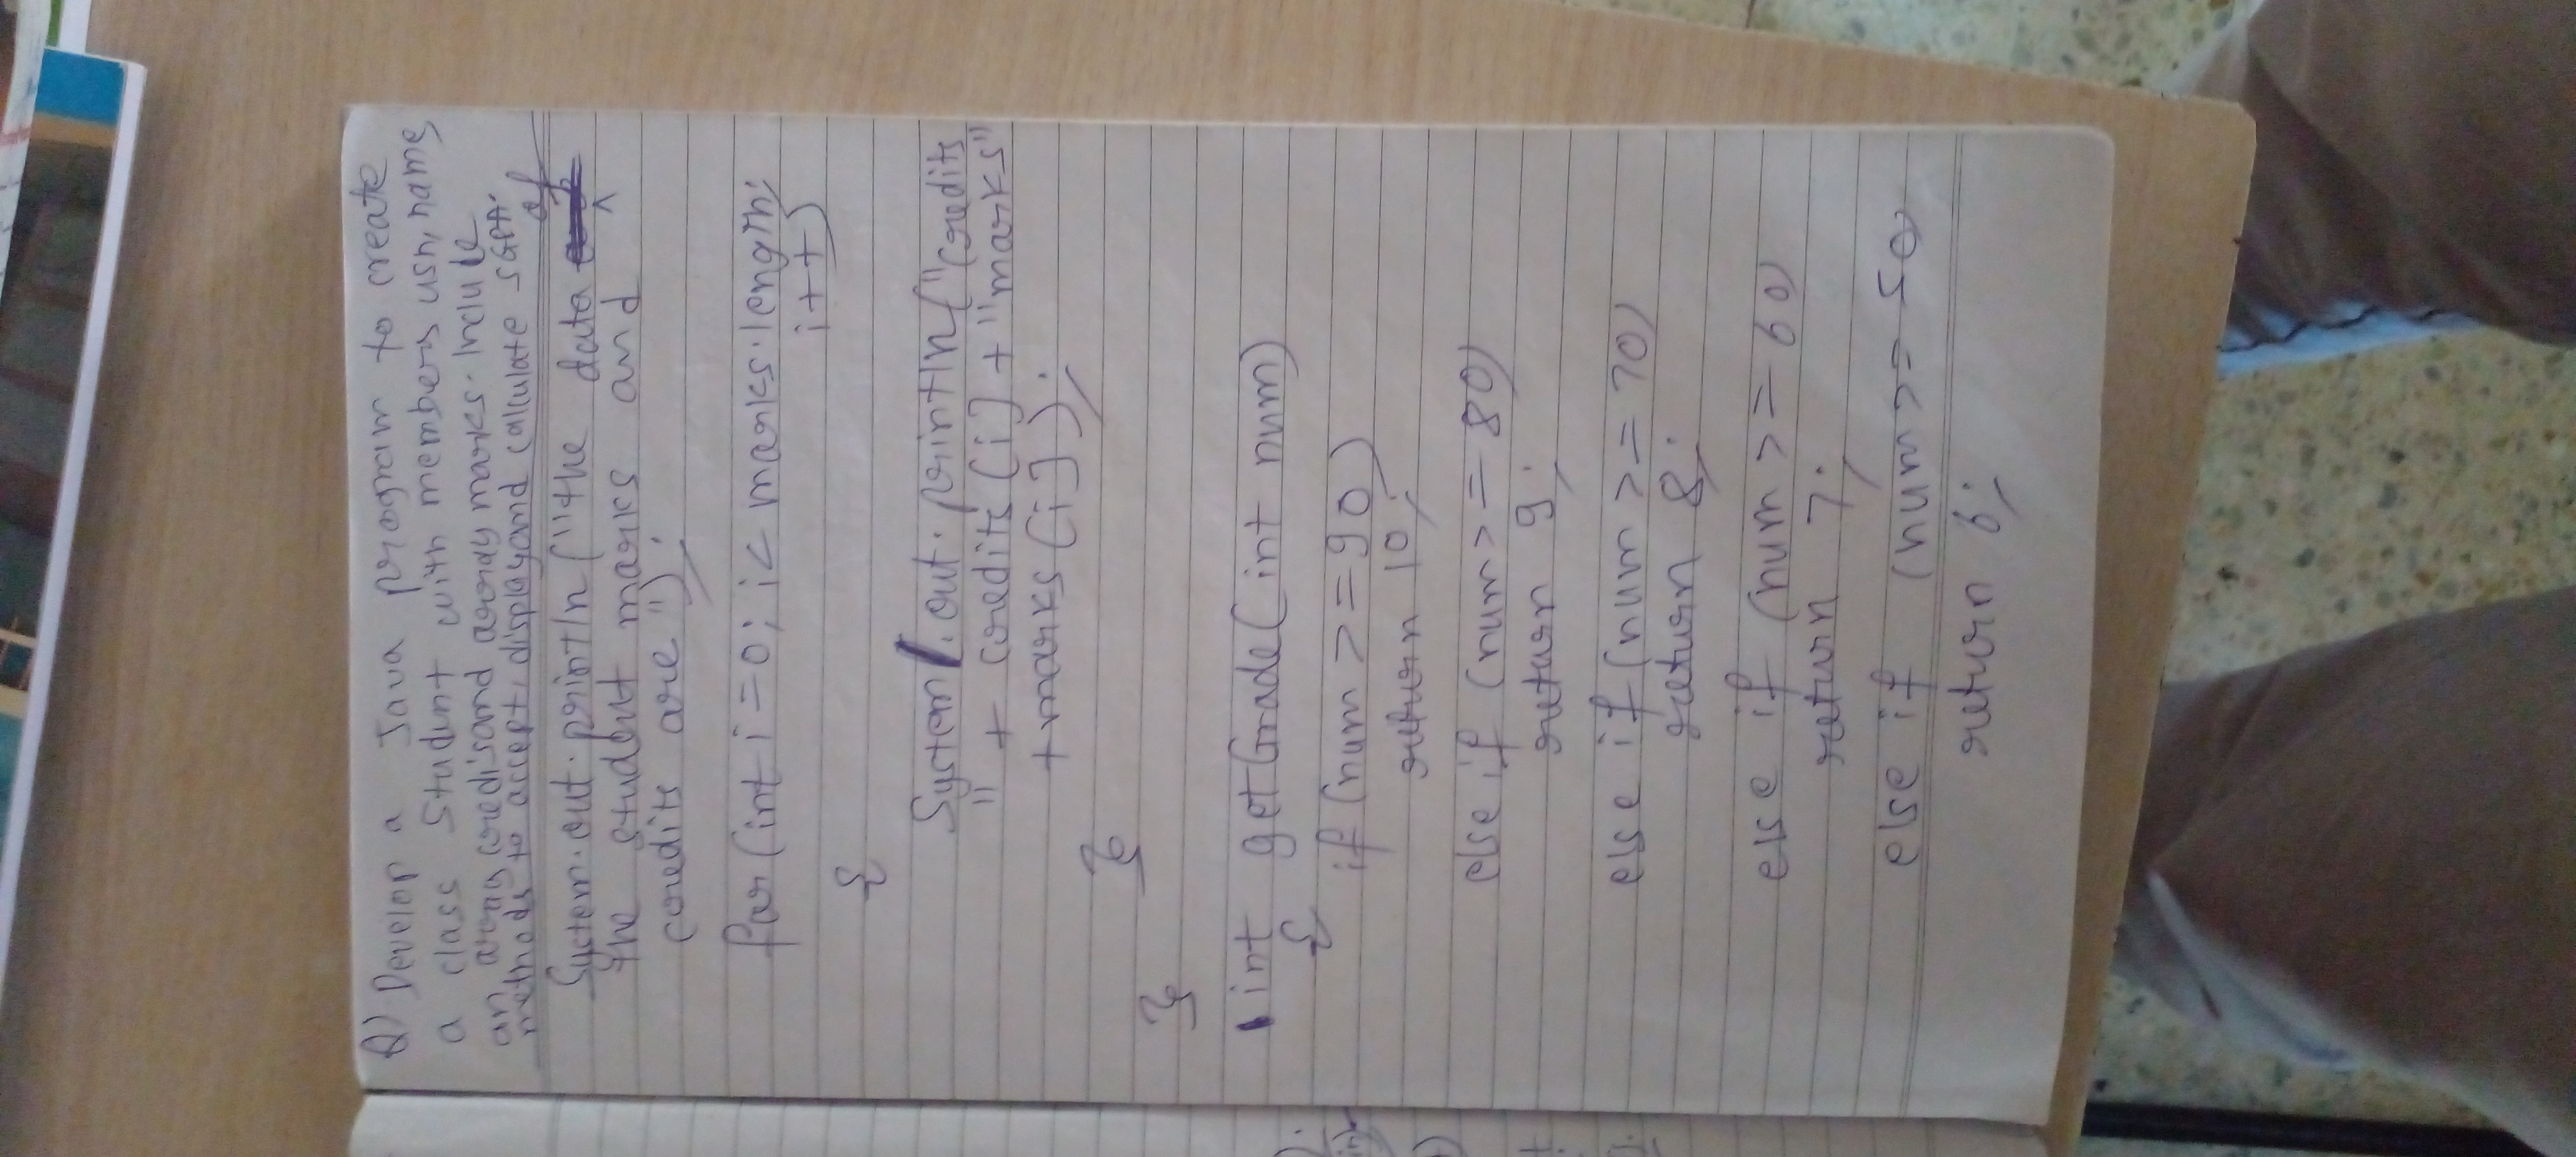 Q) Develop a Java program to create
a class Student with members usn, name,
an array credits and array marks. Include
methods to accept, display and calculate SGPA.
System.out.println("the data of
the student marks and
credits are");
for (int i=0; i< marks.length;
i++)
{
System.out.println("credits
" + credits[i] + "marks"
+ marks[i]);
}
}
int getGrade(int num)
{
if (num >= 90)
return 10;
else if (num >= 80)
return 9;
else if (num >= 70)
return 8;
else if (num >= 60)
return 7;
else if (num >= 50)
return 6;